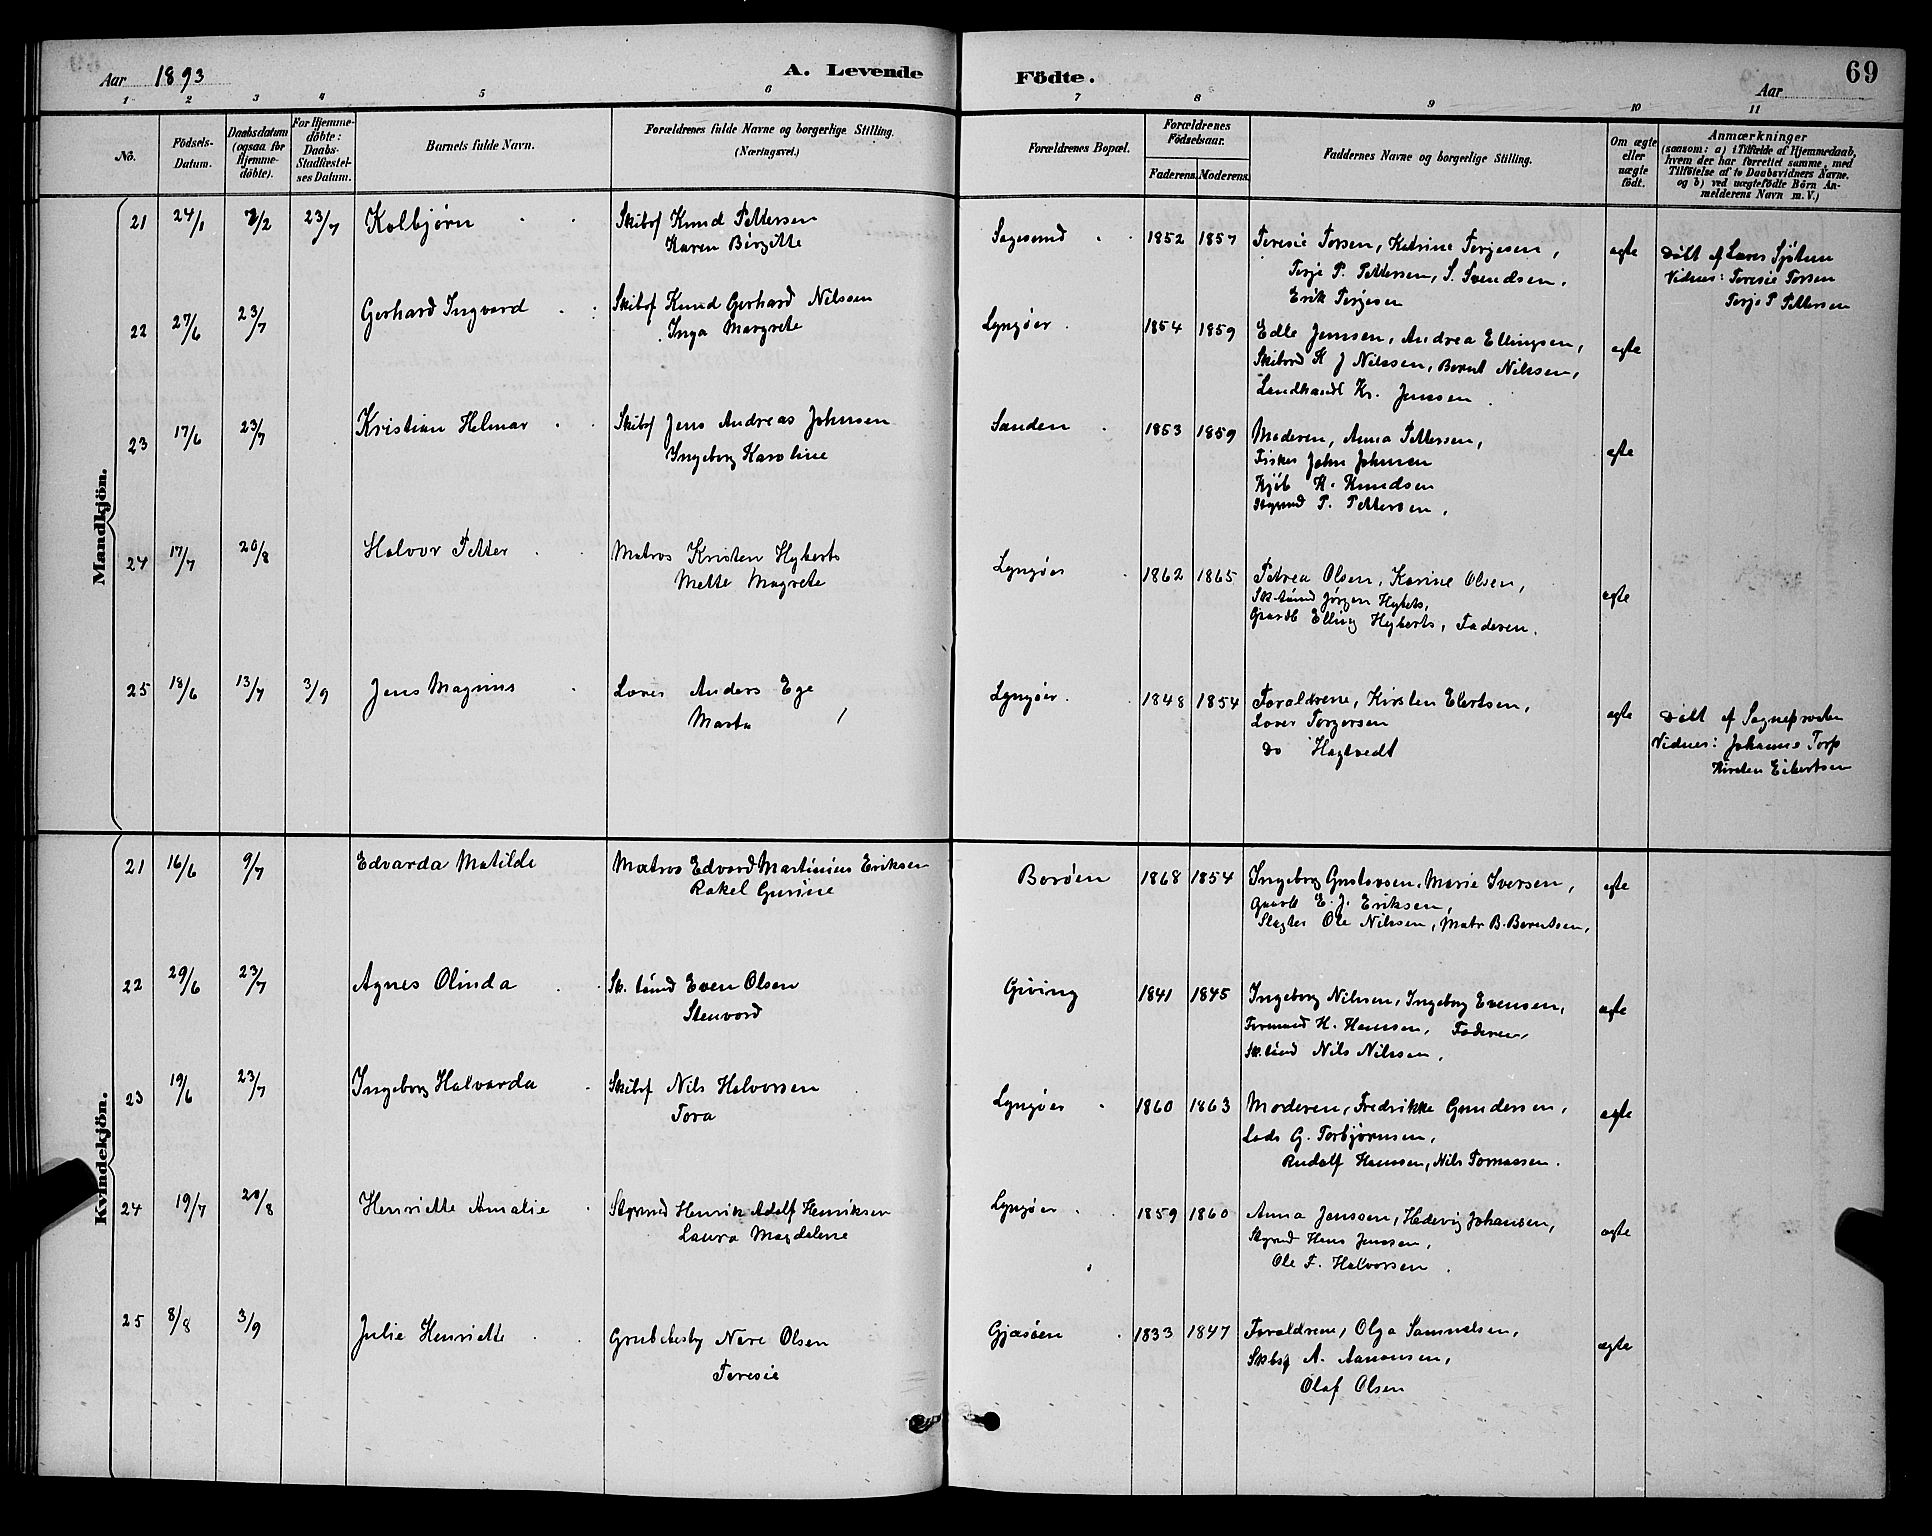 Aar 1893
A. Levende Födte.
Aar
69
1 2 3 4 5 6 7 8 9 10 11
No.
Födsels-
Datum.
Daabsdatum
(ogsaa for
Hjemme-
döbte).
For Hjemme-
döbte:
Daabs-
Stadfæstel-
ses Datum.
Barnets fulde Navn.
Forældrenes fulde Navne og borgerlige Stilling.
(Næringsvei.)
Forældrenes Bopæl.
Forældrenes
Födselsaar.
Faderens. Moderens.
Faddernes Navne og borgerlige Stilling.
Om ægte
eller
uægte
födt.
Anmærkninger
(saasom: a) i Tilfælde af Hjemmedaab,
hvem der har forrettet samme, med
Tilföielse af to Daabsvidners Navne.
og b) ved uægtefödte Börn An-
melderens Navn m. V.)
Mandkjön.
21 24/1 2/2 23/7 Kolbjørn
Skibsf Knud Pettersen
Karen Birgitte
Sagesund 1852 1857
Teresie Torsen, Katrine Terjesen,
Terje P. Pettersen, S. Svendsen,
Erik Terjesen
ægte
Døbt af Lærer
Vidner: Teresie Torsen
Terje P Pettersen
22 27/6 23/7 Gerhard Ingvard
Skibsf Knud Gerhard Nilssen
Inga Margrete
Lyngøer 1854 1859
Edle Jenssen, Andrea Ellingsen,
K J Nilssen, Bernt Nilssen,
Landhandl Kr. Jenssen
ægte
23 17/6 23/7 Kristian Helmar
Skibsf Jens Andreas Johnsen
Ingeborg Karoline
Sanden 1853 1859
Moderen, Anna Pettersen,
Fisker John Johnsen
Kjøb K. Knudsen
P. Pettersen,
ægte
24 17/7 20/8 Halvor Petter
Matros Kristen Hyberts
Mette Magrete
Lyngøer 1862 1865
Petrea Olsen, Karine Olsen,
Sk.tømd Jørgen Hyberts,
Gaardb Elling Hyberts, Faderen.
ægte
25 18/6 13/7 3/9 Jens Magnus
Lover Anders Ege
Marta
Lyngøer 1848 1854
Forældrene, Kirsten Elertsen,
Lover Torgersen
Do Hagtvedt
ægte
Døbt af Sognepresten
Vidner: Johanne Torp
Kirsten Eilertsen
Kvindekjön.
21 16/6 9/7 Edvarda Matilde
Matros Edvard Martinius Eriksen
Rakel Gurine
Borøen 1868 1854
Ingeborg Gustavsen, Marie Iversen,
Gaardb E. J. Eriksen,
Slagter Ole Nilssen, Matr B. Berntsen,
ægte
22 29/6 23/7 Agnes Olinda
Sk.tømd Even Olsen
Stenvord
Giving 1841 1845
Ingeborg Nilssen, Ingeborg Evensen,
Formand H. Hanssen, Faderen,
Sk.tømd Nils Nilssen,
ægte
23 19/6 23/7 Ingeborg Halvarda
Skibsf Nils Halvorsen
Tora
Lyngøer 1860 1863
Moderen, Fredrikke Gundersen,
Lods G. Torbjørnsen,
Rudolf Hanssen, Nils Tomassen.
ægte
24 19/7 20/8 Henriette Amalie
Styrmd Henrik Adolf Henriksen
Laura Magdalene
Lyngøer 1859 1860
Anna Jenssen, Hedevig Johansen,
Styrmd Hans Jenssen,
Ole F. Halvorsen.
ægte
25 8/8 3/9 Julie Henriette
Nære Olsen
Teresie
Gjæsøen 1833 1847
Forældrene, Olga Samuelsen,
A. Aanonsen,
Olaf Olsen
ægte